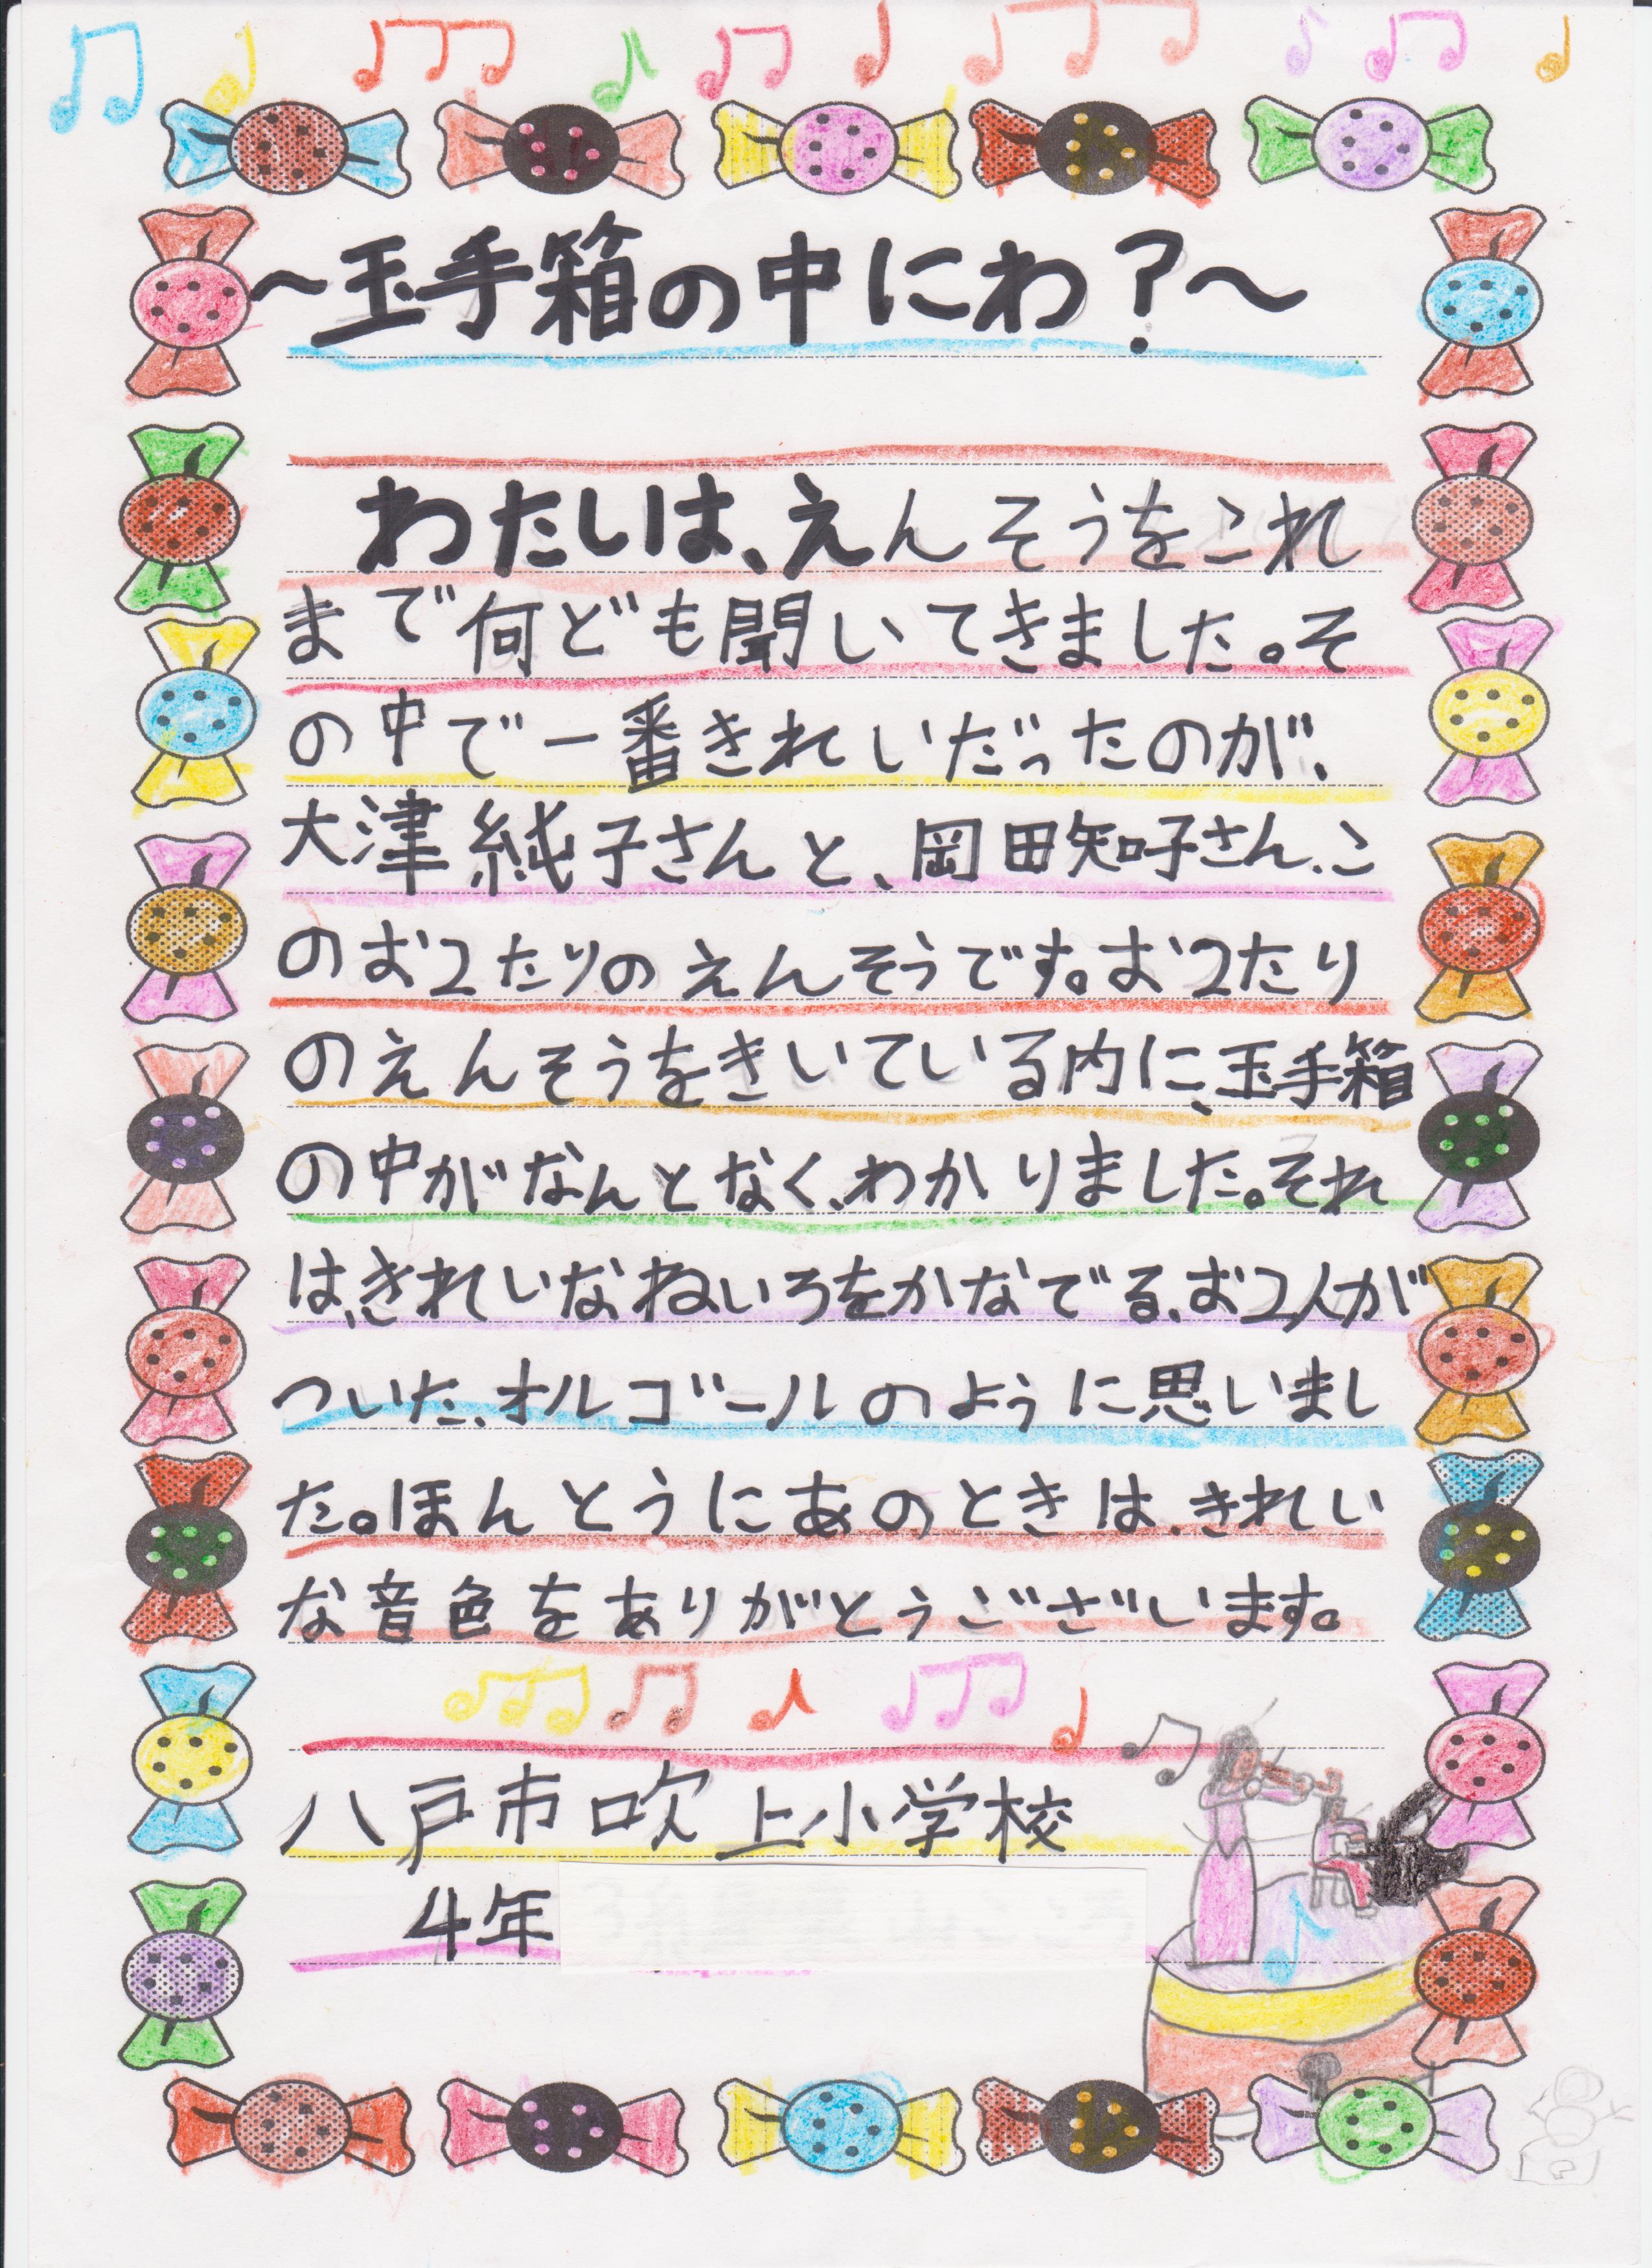 ～玉手箱の中にわ？～
わたしは、えんそうをこれ
まで何ども聞いてきました。そ
の中で一番きれいだったのが、
大津純子さんと、岡田知子さん、こ
のお2たりのえんそうです。お2たり
のえんそうをきいている内に、玉手箱
の中がなんとなく、わかりました。それ
は、きれいな、ねいろをかなでる、お2人が
ついた、オルゴールのように思いまし
た。ほんとうにあのときは、きれい
な音色をありがとうございます。
八戸市吹上小学校
4年